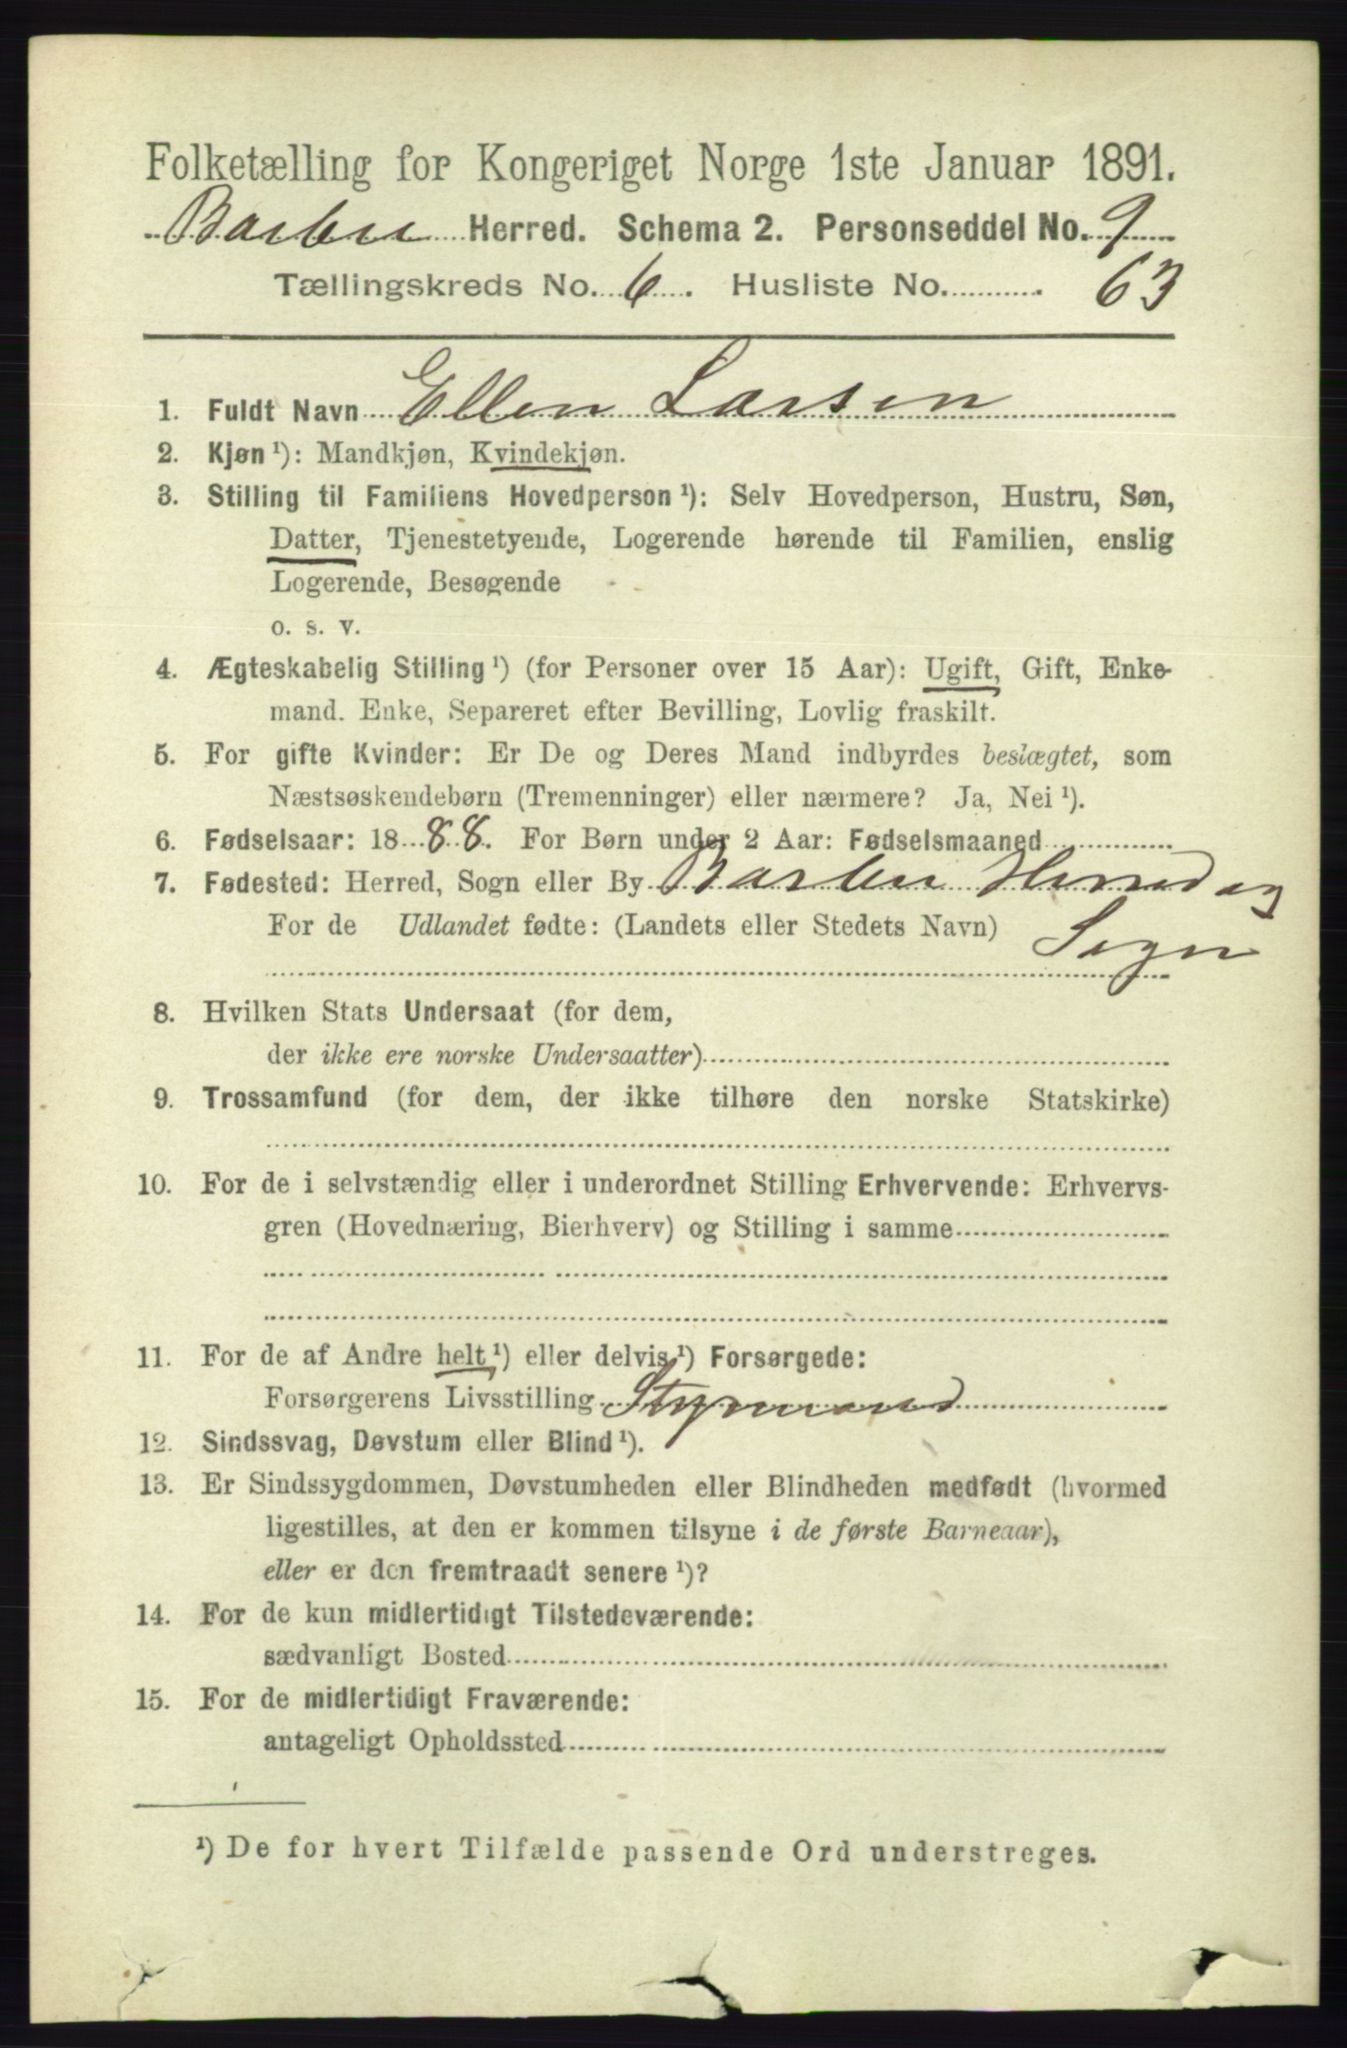 Folketælling for Kongeriget Norge 1ste Januar 1891.
Barbu Herred. Schema 2. Personseddel No. 9
Tællingskreds No. 6. Husliste No. 63
1. Fuldt Navn Ellen Larsen
2. Kjøn ¹): Mandkjøn, Kvindekjøn.
3. Stilling til Familiens Hovedperson ¹): Selv Hovedperson, Hustru, Søn,
Datter, Tjenestetyende, Logerende hørende til Familien, enslig
Logerende, Besøgende
o. s. v.
4. Ægteskabelig Stilling ¹) (for Personer over 15 Aar): Ugift, Gift, Enke-
mand. Enke, Separeret efter Bevilling, Lovlig fraskilt.
5. For gifte Kvinder: Er De og Deres Mand indbyrdes beslægtet, som
Næstsøskendebørn (Tremenninger) eller nærmere? Ja, Nei ¹).
6. Fødselsaar: 1888. For Børn under 2 Aar: Fødselsmaaned
7. Fødested: Herred, Sogn eller By Barbu Herred og
For de Udlandet fødte: (Landets eller Stedets Navn) Sogn
8. Hvilken Stats Undersaat (for dem,
der ikke ere norske Undersaatter)
9. Trossamfund (for dem, der ikke tilhøre den norske Statskirke)
10. For de i selvstændig eller i underordnet Stilling Erhvervende: Erhvervs-
gren (Hovednæring, Bierhverv) og Stilling i samme
11. For de af Andre helt ¹) eller delvis ¹) Forsørgede:
Forsørgerens Livsstilling Styrmand
12. Sindssvag, Døvstum eller Blind ¹).
13. Er Sindssygdommen, Døvstumheden eller Blindheden medfødt (hvormed
ligestilles, at den er kommen tilsyne i de første Barneaar),
eller er den fremtraadt senere ¹)?
14. For de kun midlertidigt Tilstedeværende:
sædvanligt Bosted
15. For de midlertidigt Fraværende:
antageligt Opholdssted
¹) De for hvert Tilfælde passende Ord understreges.